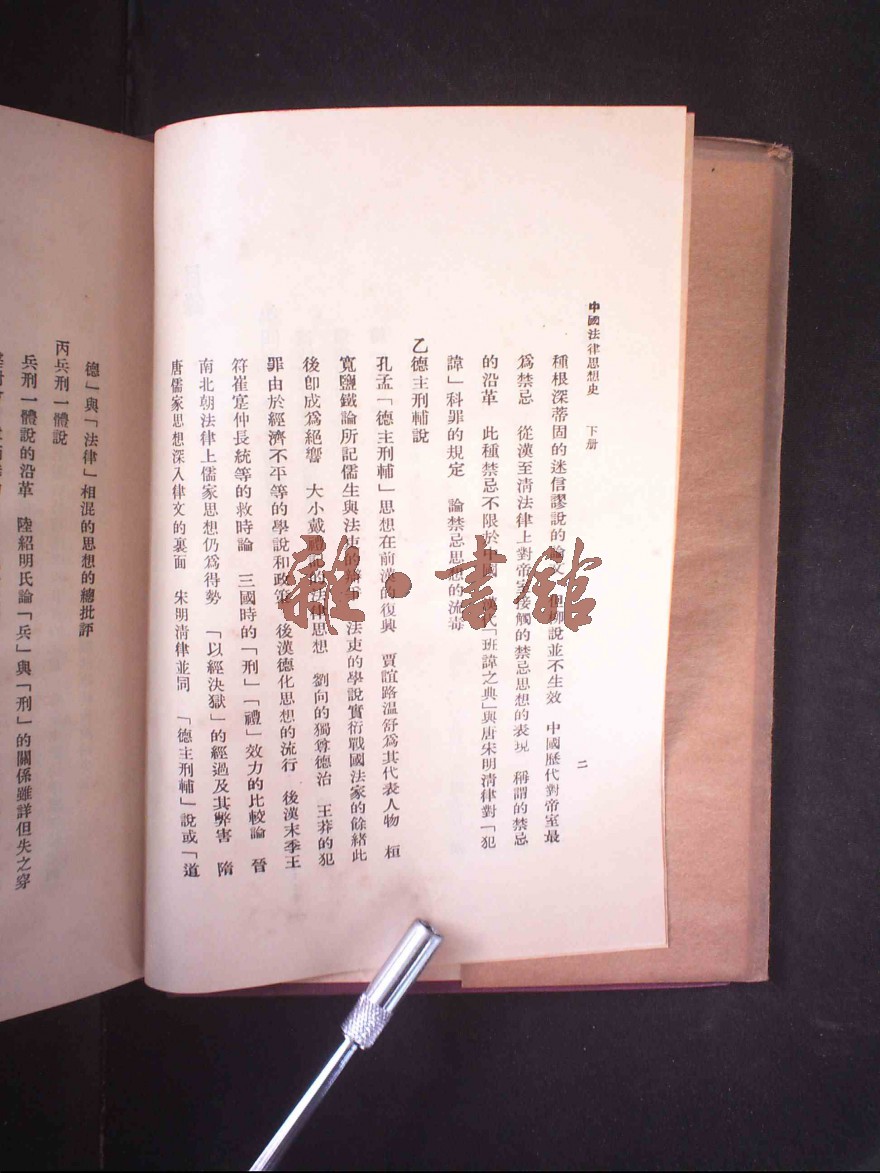 中國法律思想史　下册
二
種根深蒂固的迷信謬說的論文　但柳說並不生效　中國歷代對帝室最
爲禁忌　從漢至淸法律上對帝室接觸的禁忌思想的表現　稱謂的禁忌
的沿革　此種禁忌不限於中國　漢代「班諱之典」與唐宋明淸律對「犯
諱」科罪的規定　論禁忌思想的流毒
乙德主刑輔說
孔孟「德主刑輔」思想在前漢的復興　賈誼路溫舒爲其代表人物　桓
寬鹽鐵論所記儒生與法吏的　法吏的學說實衍戰國法家的餘緒此
後卽成爲絕響　大小戴禮記的法律思想　劉向的獨尊德治　王莽的犯
罪由於經濟不平等的學說和政策　後漢德化思想的流行　後漢末季王
符崔寔仲長統等的救時論　三國時的「刑」「禮」效力的比較論　晉
南北朝法律上儒家思想仍爲得勢　「以經決獄」的經過及其弊害　隋
唐儒家思想深入律文的裏面　宋明淸律並同　「德主刑輔」說或「道
德」與「法律」相混的思想的總批評
丙兵刑一體說
兵刑一體說的沿革　陸紹明氏論「兵」與「刑」的關係雖詳但失之穿
雜·書館